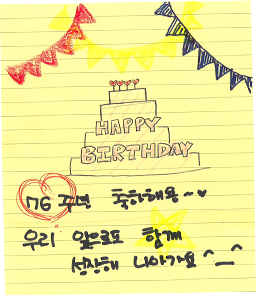 HAPPY
BIRTHDAY
76 주년 축하해용~♥
우리 앞으로도 함께
성장해 나아가요 ^__^